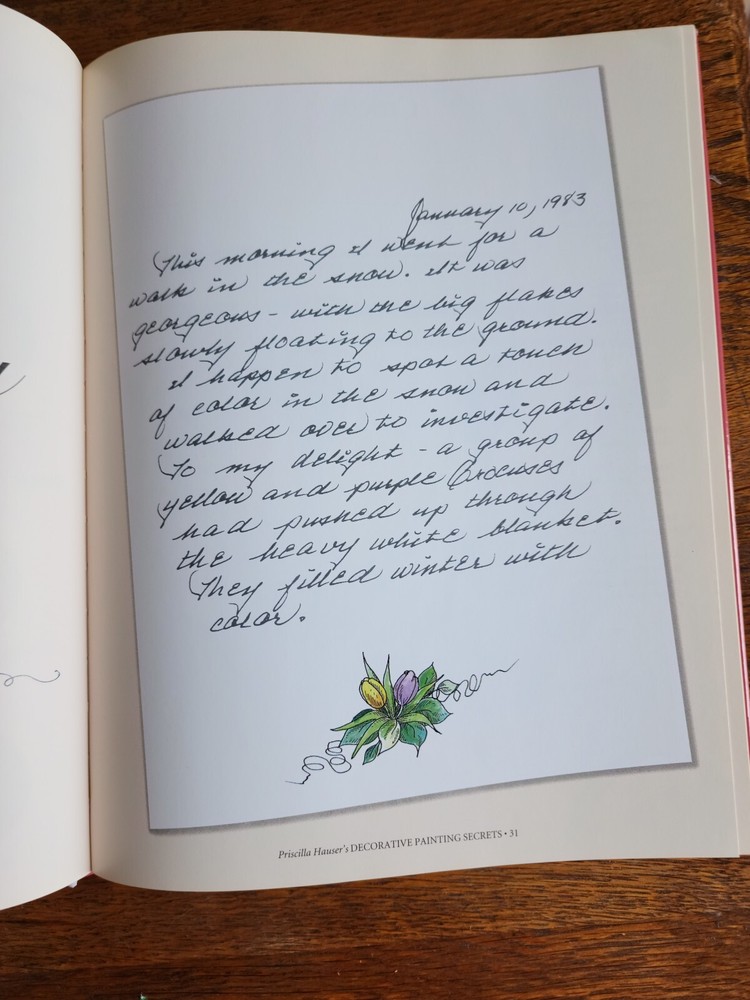 January 10, 1983
This morning I went for a
walk in the snow. It was
georgeous - with the big flakes
slowly floating to the ground.
I happen to spot a touch
of color in the snow and
walked over to investigate.
To my delight - a group of
yellow and purple Crocuses
had pushed up through
the heavy white blanket.
They filled winter with
color.
Priscilla Hauser's DECORATIVE PAINTING SECRETS • 31